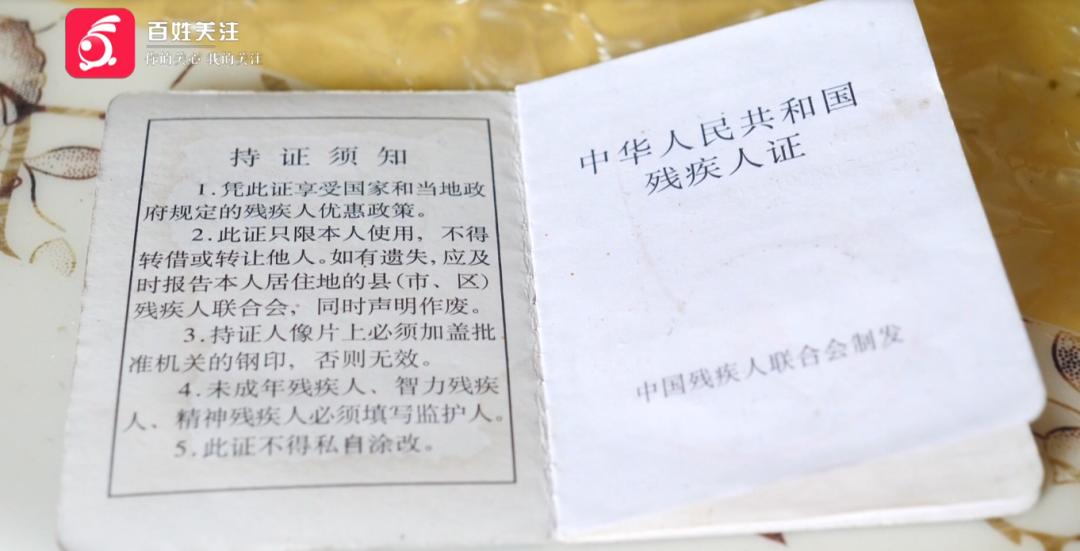 百姓关注
你的关心 我的关注
持证须知
1.凭此证享受国家和当地政
府规定的残疾人优惠政策。
2.此证只限本人使用，不得
转借或转让他人。如有遗失，应及
时报告本人居住地的县(市、区)
残疾人联合会，同时声明作废。
3.持证人像片上必须加盖批
准机关的钢印，否则无效。
4.未成年残疾人、智力残疾
人、精神残疾人必须填写监护人。
5.此证不得私自涂改。
中华人民共和国
残疾人证
中国残疾人联合会制发